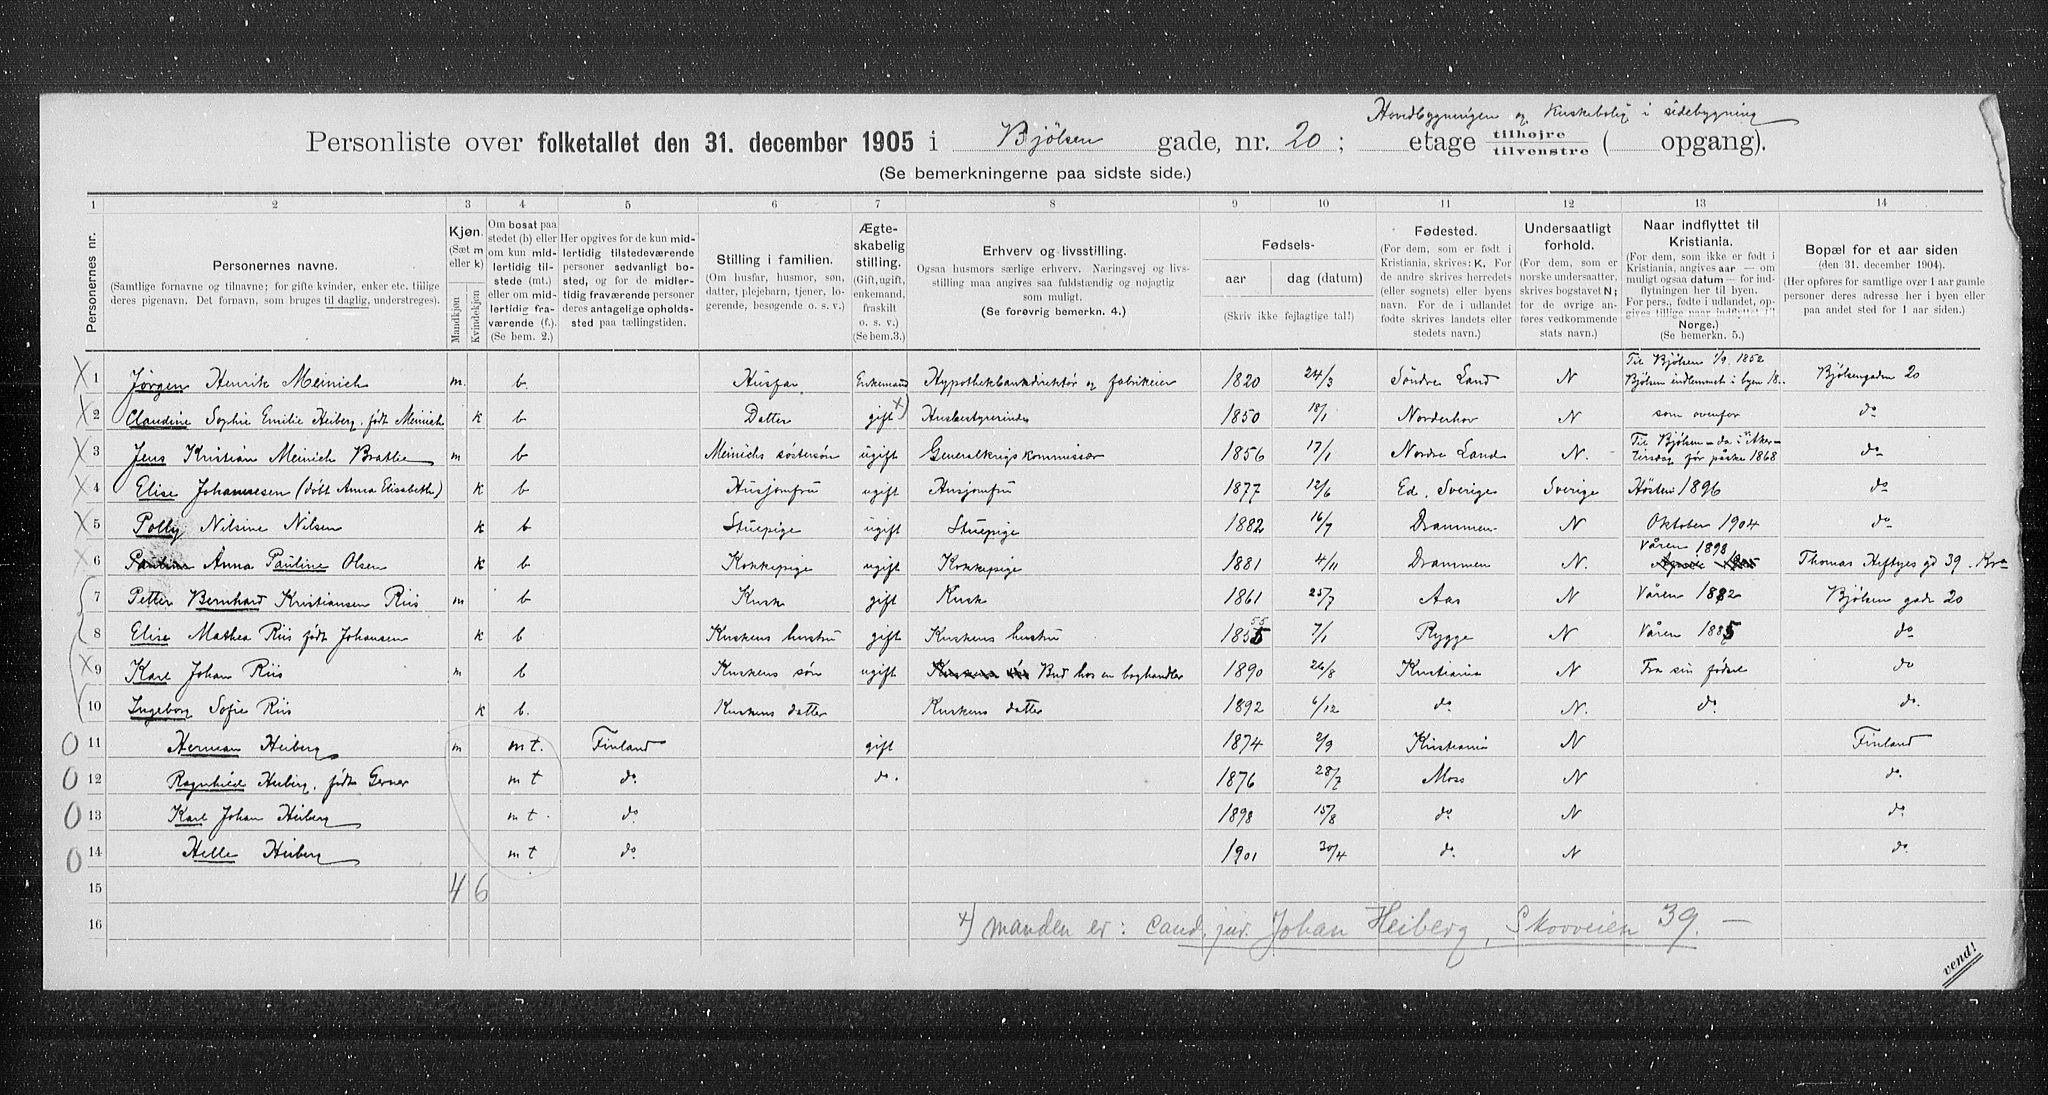 Hovedbygningen og Kuskebolig i sidebygning
Personliste over folketallet den 31. december 1905 i Bjølsen gade, nr. 20; etage tilhøjre tilvenstre ( opgang).
(Se bemerkningerne paa sidste side.)
1 2 3 4 5 6 7 8 9 10 11 12 13 14
Personernes nr.
Personernes navne.
(Samtlige fornavne og tilnavne; for gifte kvinder, enker etc. tillige deres pigenavn. Det fornavn, som bruges til daglig, understreges).
Kjøn.
(Sæt m eller k)
Mandkjøn
Kvindekjøn
Om bosat paa stedet (b) eller om kun midlertidig tilstede (mt.) eller om midlertidig fraværende (f.) (Se bem. 2.)
Her opgives for de kun midlertidig tilstedeværende personer sedvanligt bosted, og for de midlertidig fraværende personer deres antagelige opholdssted paa tællingstiden.
Stilling i familien.
(Om husfar, husmor, søn, datter, plejebarn, tjener, logerende, besøgende o. s. v.)
Ægteskabelig stilling.
(Gift, ugift, enkemand, fraskilt o. s. v.)
(Se bem. 3.)
Erhverv og livsstilling.
Ogsaa husmors særlige erhverv. Næringsvej og livsstilling maa angives saa fuldstændig og nøjagtig som muligt.
(Se forøvrig bemerkn. 4.)
Fødsels-
aar dag (datum)
(Skriv ikke fejlagtige tal!)
Fødested.
(For dem, som er født i Kristiania, skrives: K. For de andre skrives herredets (eller sognets) eller byens navn. For de i udlandet fødte skrives landets eller stedets navn.)
Undersaatligt forhold.
(For dem, som er norske undersaatter, skrives bogstavet N; for de øvrige anføres vedkommende stats navn.)
Naar indflyttet til Kristiania.
(For dem, som ikke er født i Kristiania, angives aar — om muligt ogsaa datum — for indflytningen her til byen. For pers., fødte i udlandet, opgives tillige naar indflyttet til Norge.)
(Se bemerkn. 5.)
Bopæl for et aar siden
(den 31. december 1904).
(Her opføres for samtlige over 1 aar gamle personer deres adresse her i byen eller paa andet sted for 1 aar siden.)
X 1 Jørgen Henrik Meinich m. b. Husfar Enkemand Hypothekbankdirektør og fabrikeier 1820 24/3 Søndre Land N Til Bjølsen 1/9 1852 Bjølsen indlemmet i byen 18.. Bjølsengaden 20
X 2 Claudine Sophie Emilie Heiberg, født Meinich k b Datter gift x) Husbestyrerinde 1850 18/1 Norderhov N som ovenfor do
X 3 Jens Kristian Meinich Bratlie m b Meinichs søstersøn ugift Generalkrigskommissær 1856 17/1 Nordre Land N. Til Bjølsen – da i Aker – tirsdag før påske 1868 do
X 4 Elise Johannesen (døbt Anna Elisabeth) k b Husjomfru ugift Husjomfru 1877 12/6 Ed, Sverige Sverige Høsten 1896 do
X 5 Polly Nilsine Nilsen k b Stuepige ugift Stuepige 1882 16/9 Drammen N Oktober 1904 do
X 6 Pauline Anna Pauline Olsen k b Kokkepige ugift Kokkepige 1881 4/11 Drammen N. Våren 1898 Thomas Heftyes gd 39. Kra
7 Petter Bernhard Kristiansen Riis m b Kusk gift Kusk 1861 25/7 Aas N Våren 1882 Bjølsen gade 20
8 Elise Mathea Riis født Johansen k b Kuskens hustru gift Kuskens hustru 1855 55 7/1 Rygge N Våren 1885 do
X 9 Karl Johan Riis m b Kuskens søn ugift Kuskens søn Bud hos en boghandler 1890 26/8 Kristiania N Fra sin fødsel do
10 Ingeborg Sofie Riis k b. Kuskens datter Kuskens datter 1892 6/12 do N. do. do.
0 11 Herman Heiberg m mt. Finland gift 1874 2/9 Kristiania N Finland
0 12 Ragnhild Heiberg, født Gerner mt do do. 1876 28/7 Moss N do.
0 13 Karl Johan Heiberg mt. do 1898 15/8 do N do
0 14 Helle Heiberg mt do 1901 30/4 do. N do.
15 4 6
16 x) manden er: cand. jur. Johan Heiberg, Skovveien 39. –
vend!